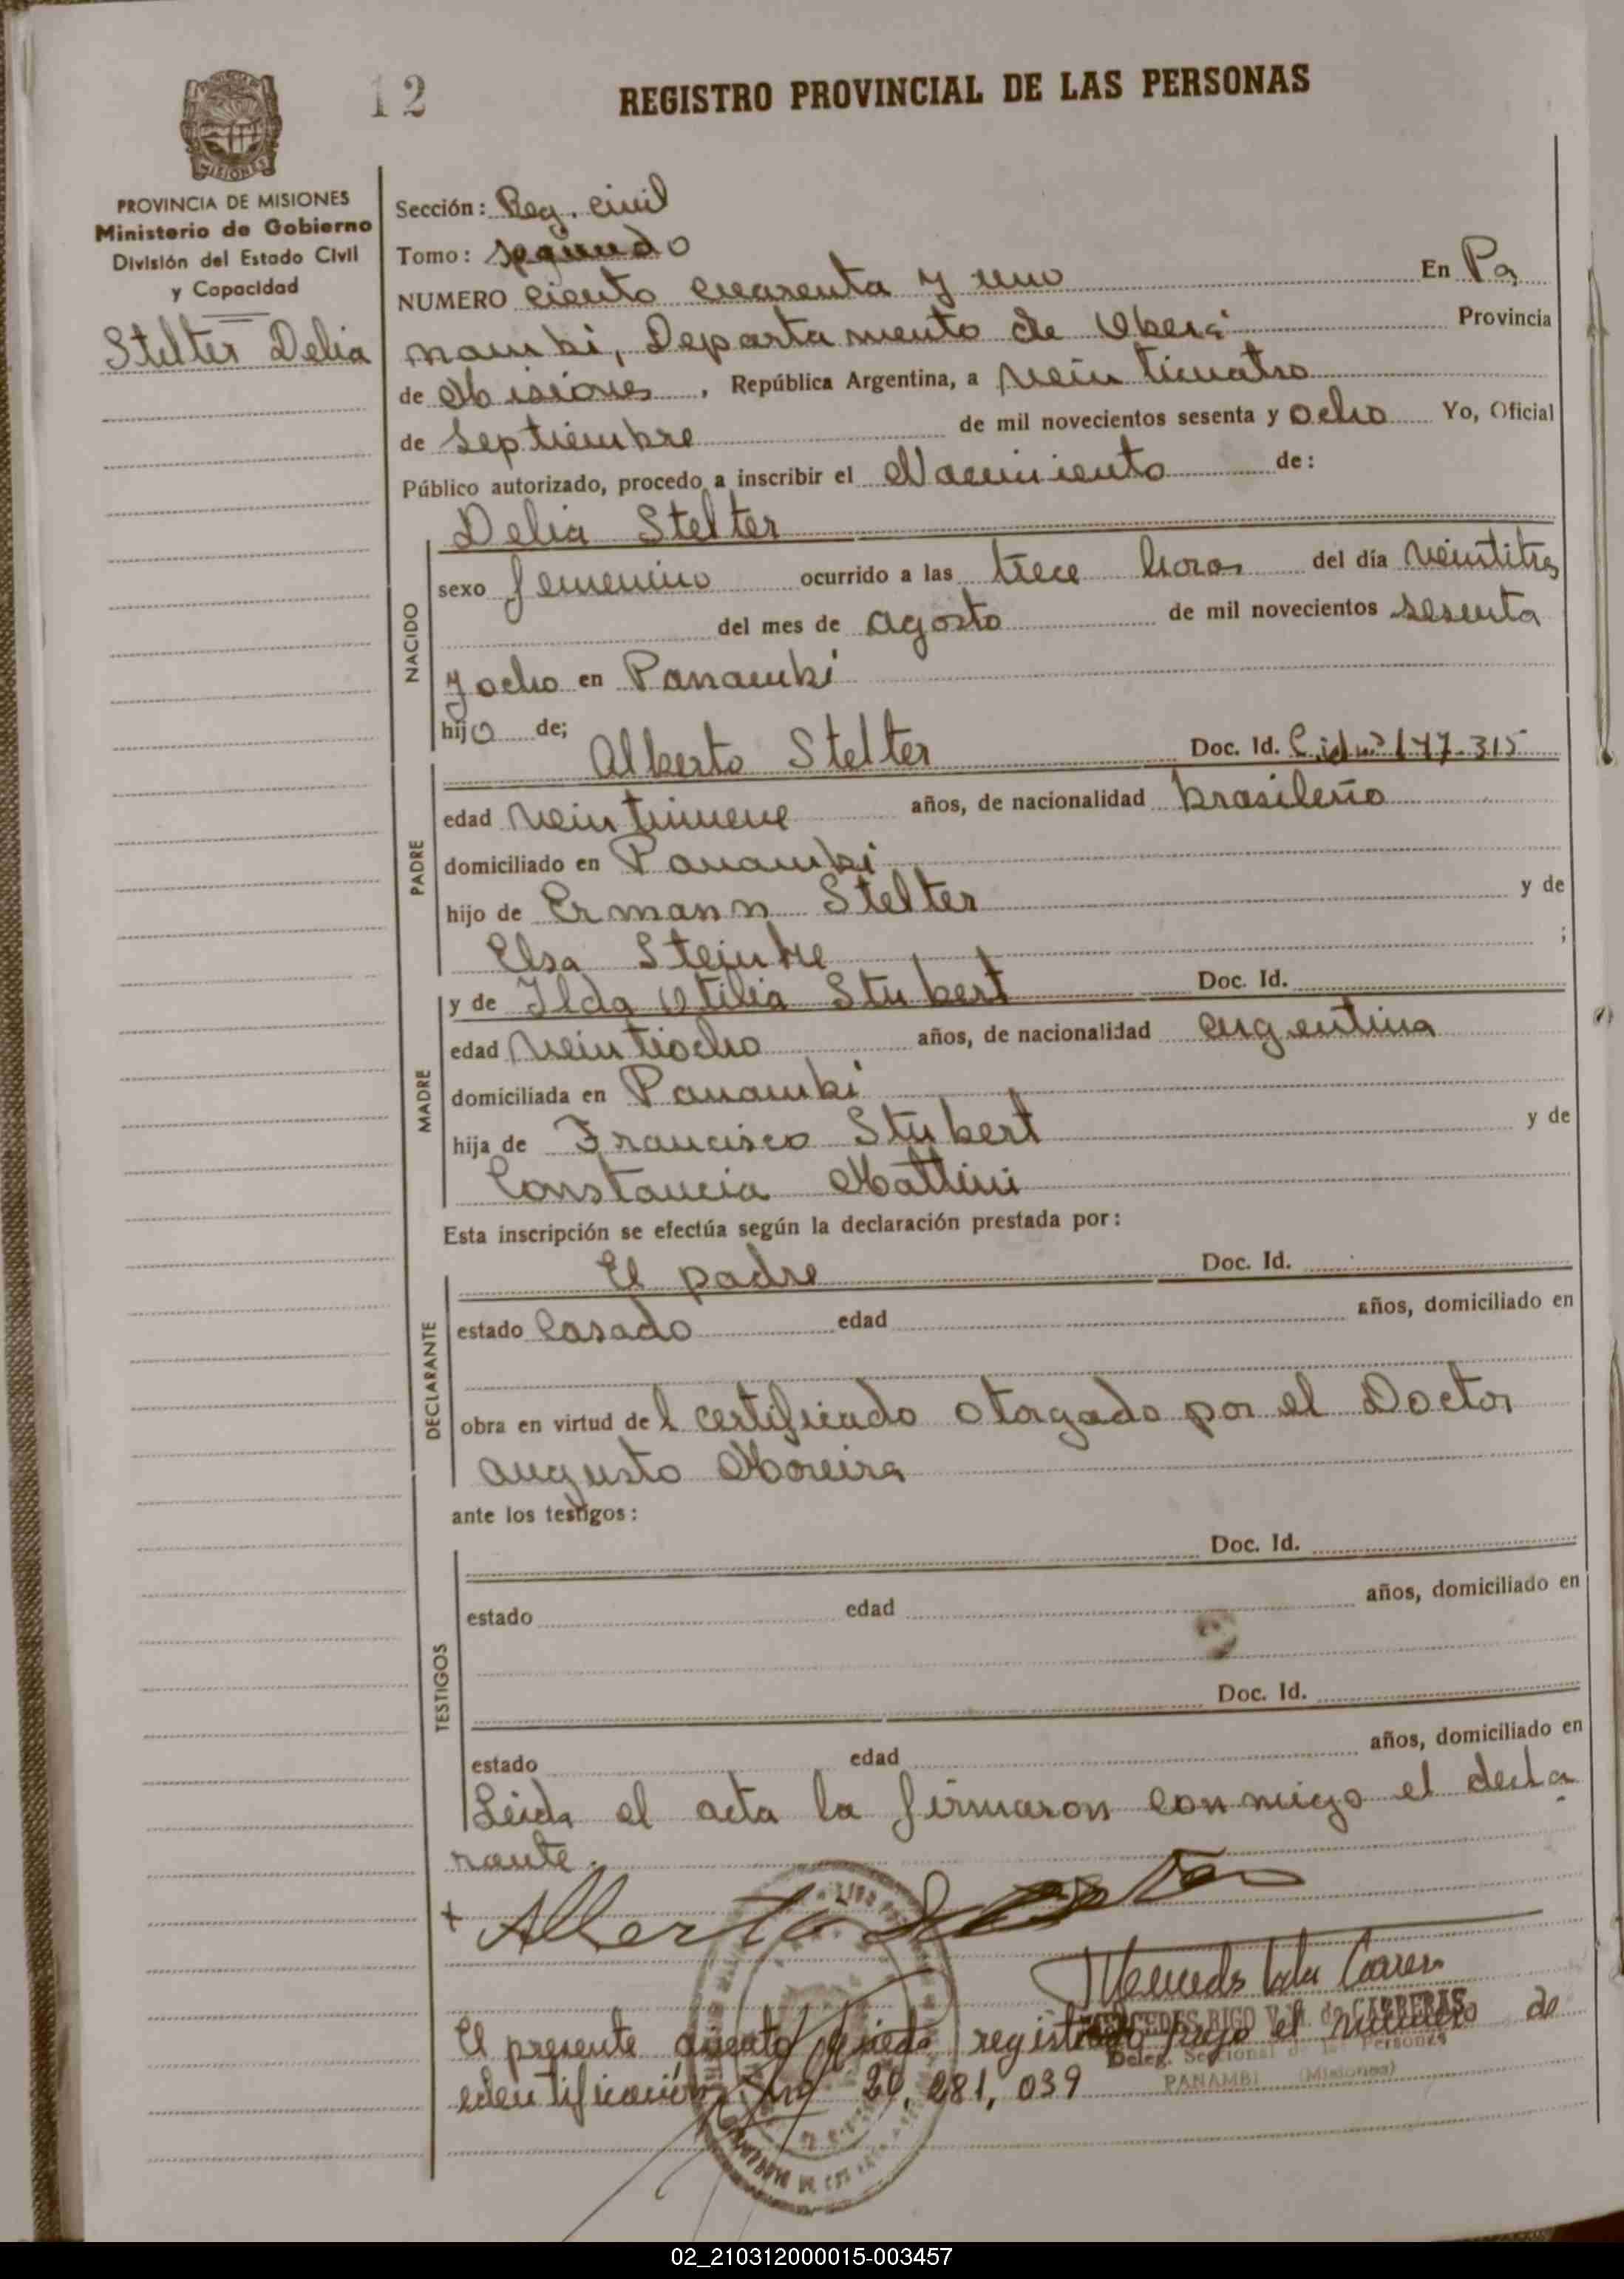 12
REGISTRO PROVINCIAL DE LAS PERSONAS
MISIONES
PROVINCIA DE MISIONES
Ministerio de Gobierno
División del Estado Civil
y Capacidad
Stelter Delia
Sección: Reg. civil
Tomo: segundo
NUMERO ciento cuarenta y uno En Pa
nambi, Departamento de Oberá Provincia
de Misiones, República Argentina, a veinticuatro
de septiembre de mil novecientos sesenta y ocho Yo, Oficial
Público autorizado, procedo a inscribir el Nacimiento de:
NACIDO
Delia Stelter
sexo femenino ocurrido a las trece horas del día veintitres
del mes de agosto de mil novecientos sesenta
y ocho en Panambi
hija de;
PADRE
Alberto Stelter Doc. Id. C.id nº 147.315
edad veintinueve años, de nacionalidad brasileño
domiciliado en Panambi
hijo de Ermann Stelter y de
Elsa Steinke ;
MADRE
y de Ilda Otilia Stubert Doc. Id.
edad veintiocho años, de nacionalidad argentina
domiciliada en Panambi
hija de Francisco Stubert y de
Constancia Mattini
Esta inscripción se efectúa según la declaración prestada por:
DECLARANTE
El padre Doc. Id.
estado Casado edad años, domiciliado en
obra en virtud del certificado otorgado por el Doctor
Augusto Moreira
ante los testigos:
TESTIGOS
Doc. Id.
estado edad años, domiciliado en
Doc. Id.
estado edad años, domiciliado en
Leida el acta la firmaron conmigo el decla
rante.
+ Alberto
MERCEDES RIGO V. M. de CARRERAS
Deleg. Seccional de las Personas
PANAMBI (Misiones)
El presente asiento queda registrado bajo el número de
edentificación nº 20,281,039
02_210312000015-003457